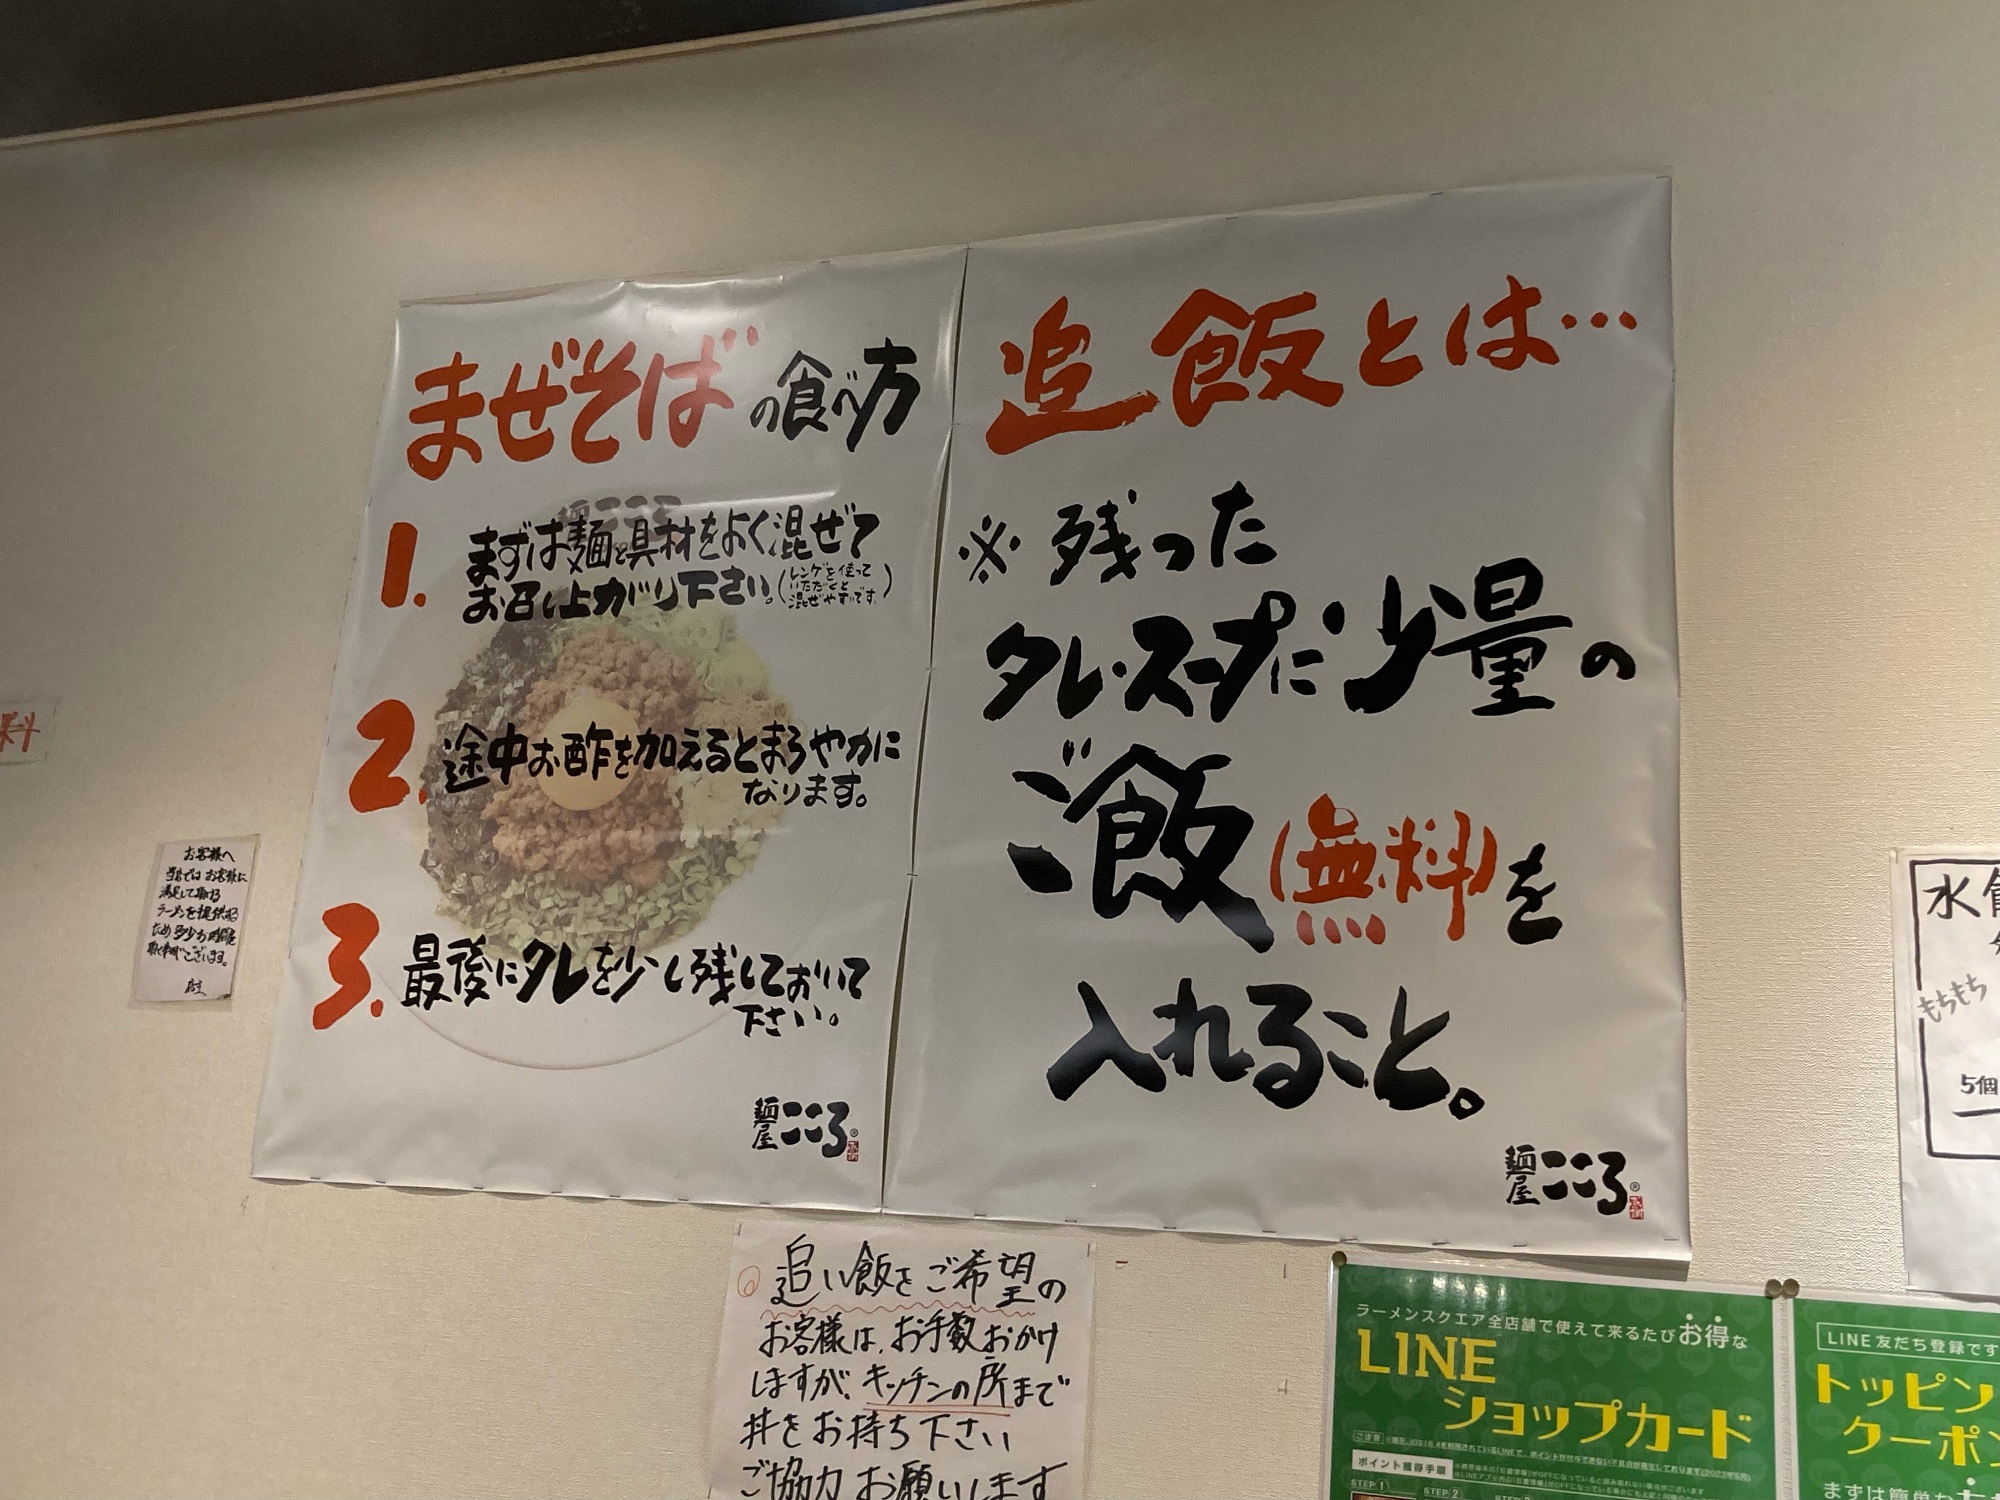 まぜそばの食べ方
1. まずは麺と具材をよく混ぜて
お召し上がり下さい。(レンゲを使って
いただくと
混ぜやすいです。)
2. 途中お酢を加えるとまろやかに
なります。
3. 最後にタレを少し残しておいて
下さい。
麺屋こころ®
追飯とは…
※残った
タレ・スープに少量の
ご飯(無料)を
入れること。
麺屋こころ®
料
お客様へ
当店ではお客様に
満足して頂ける
ラーメンを提供する
ため多少お時間を
頂く事がございます。
店主
追い飯をご希望の
お客様は、お手数おかけ
しますが、キッチンの所まで
丼をお持ち下さい
ご協力お願いします
ラーメンスクエア全店舗で使えて来るたびお得な
LINE
ショップカード
ご注意
ポイント獲得手順
STEP 1
STEP 2
LINE友だち登録です
トッピン
クーポン
まずは簡単な
水
もちもち
5個